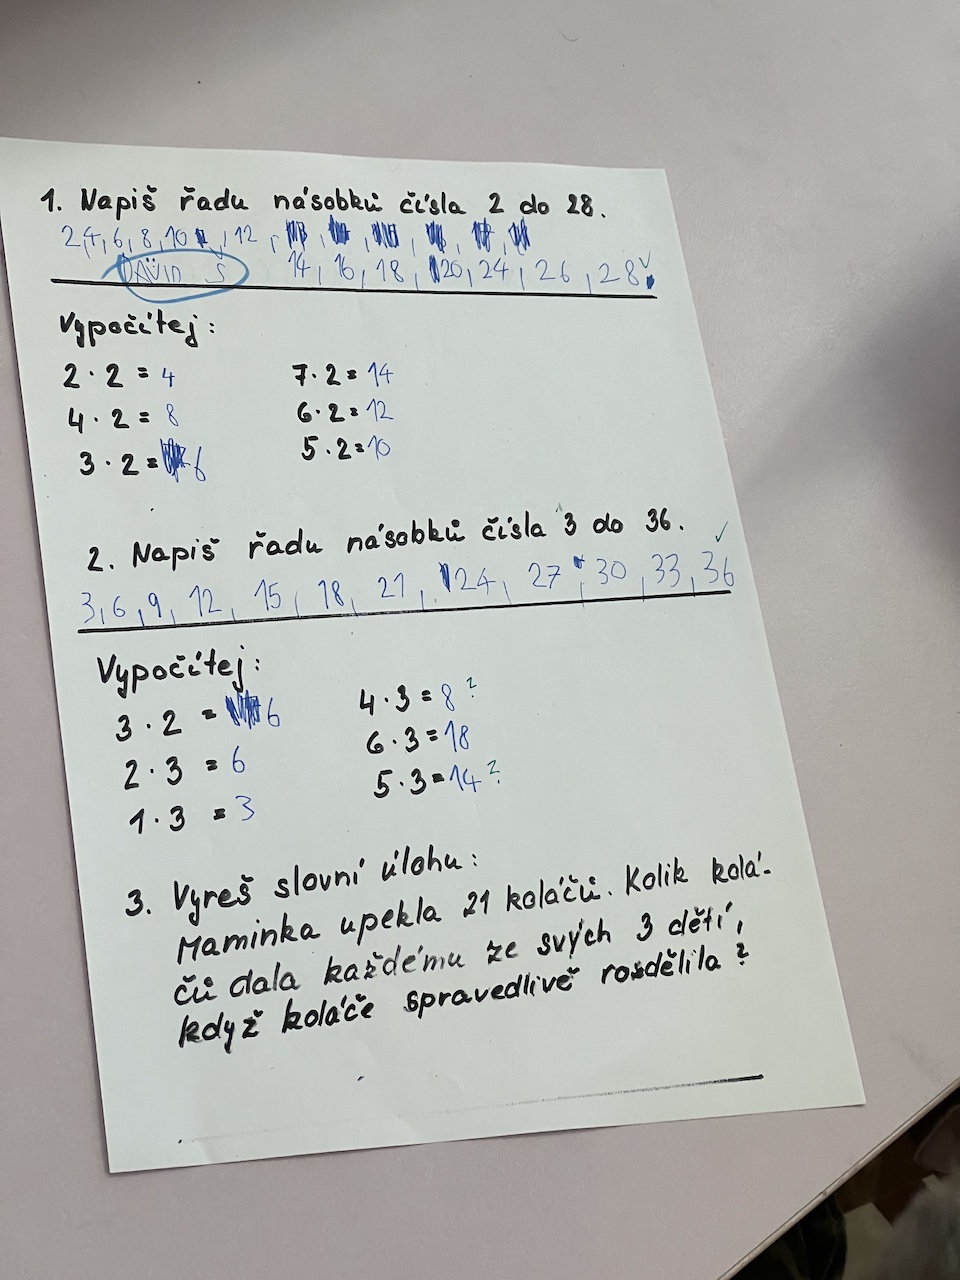 1. Napiš řadu násobků čísla 2 do 28.
2, 4, 6, 8, 10, 12,
DAVID S 14, 16, 18, 20, 24, 26, 28 ✓
Vypočítej:
2 · 2 = 4 7 · 2 = 14
4 · 2 = 8 6 · 2 = 12
3 · 2 = 6 5 · 2 = 10
2. Napiš řadu násobků čísla 3 do 36. ✓
3, 6, 9, 12, 15, 18, 21, 24, 27, 30, 33, 36
Vypočítej:
3 · 2 = 6 4 · 3 = 8 ?
2 · 3 = 6 6 · 3 = 18
1 · 3 = 3 5 · 3 = 14 ?
3. Vyreš slovní úlohu:
Maminka upekla 21 koláčů. Kolik kolá-
čů dala každému ze svých 3 dětí,
když koláče spravedlivě rosdělila?